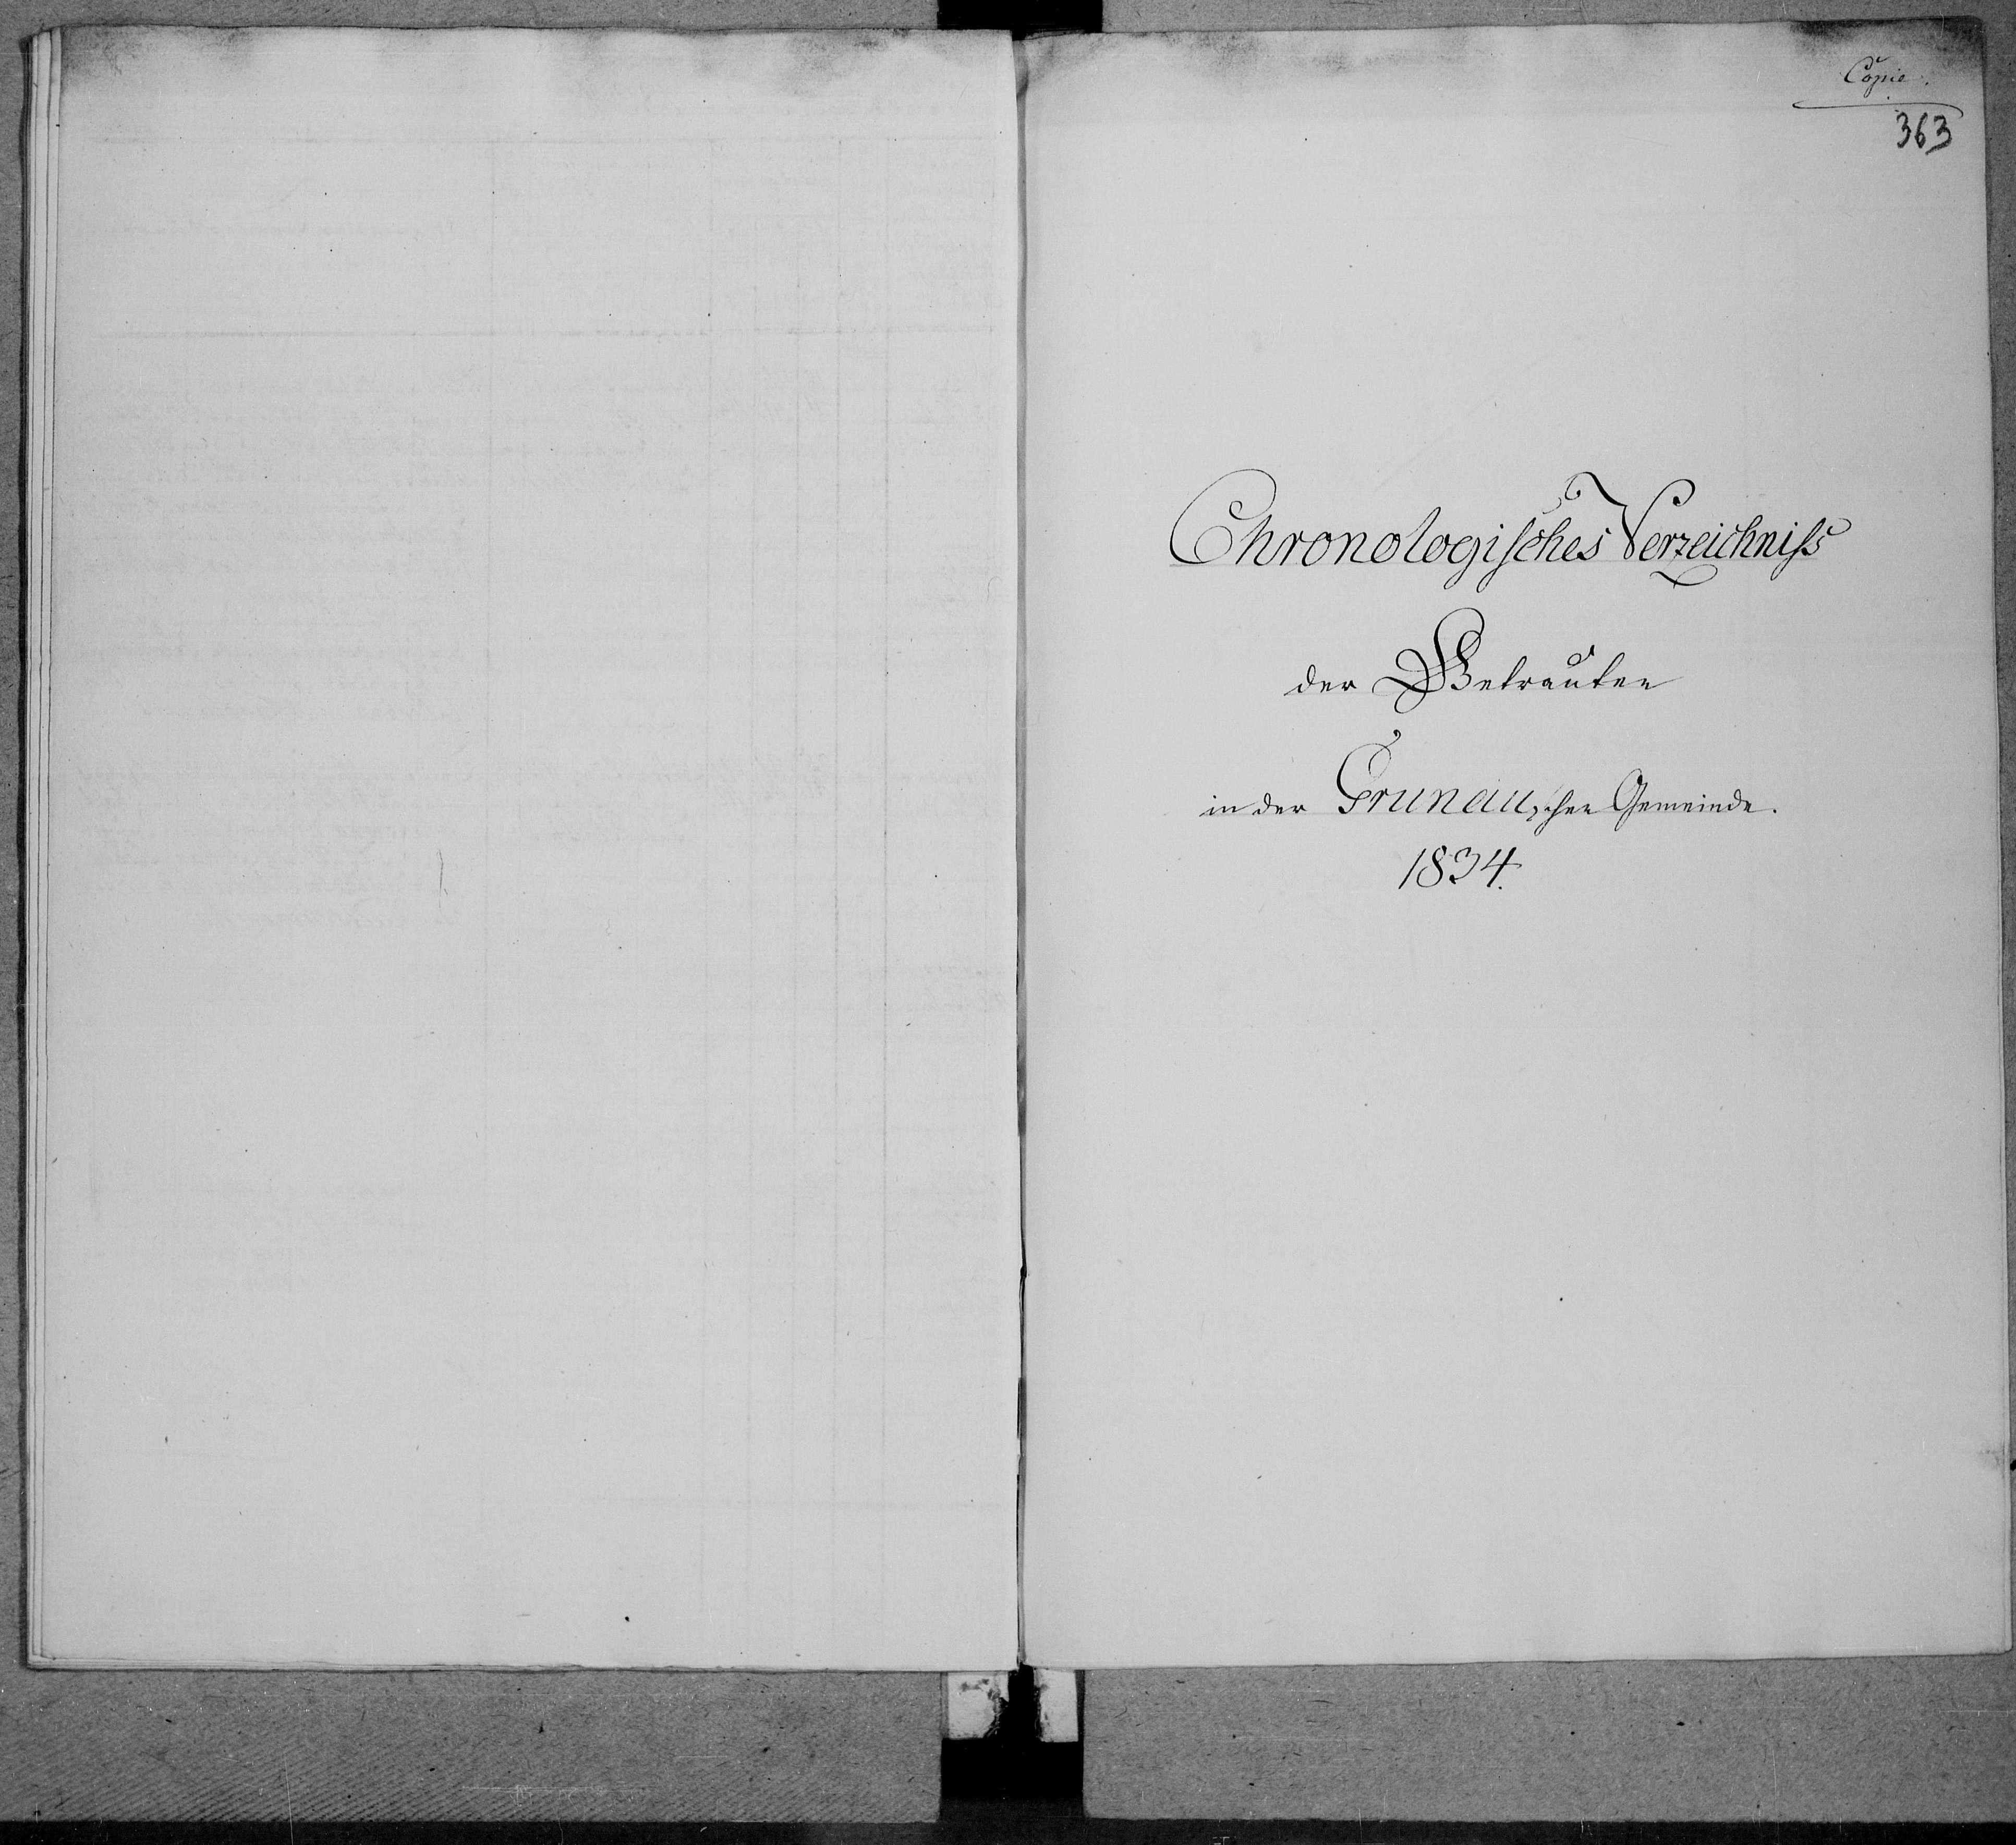 Copie.
363
Chronologisches Verzeichniss
der Getrauten
in der Grunauschen Gemeinde.
1834.